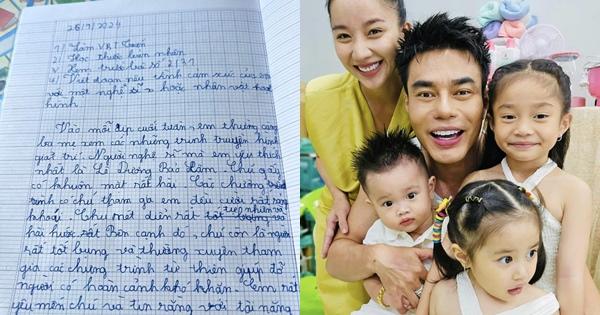 26/7/2024
1/ Làm VBT Toán
2/ Học thuộc bảng nhân
3/ Xem trước bài số 2/31
4/ Viết đoạn nêu tình cảm xúc của em
với một nghệ sĩ hoặc nhân vật hoạt
hình
Vào mỗi dịp cuối tuần, em thường cùng
ba mẹ xem các chương trình truyền hình
giải trí. Người nghệ sĩ mà em yêu thích
nhất là Lê Dương Bảo Lâm. Chú ấy
có khuôn mặt rất hài. Các chương trình
có chú tham gia em đều cười rất sảng
khoái. Chú nét diễn rất tự nhiên và
hài hước. Bên cạnh đó, chú còn là người
rất tốt bụng và thường xuyên tham
gia các chương trình từ thiện giúp đỡ
người có hoàn cảnh khó khăn. Em rất
yêu mến chú và tin rằng với tài năng